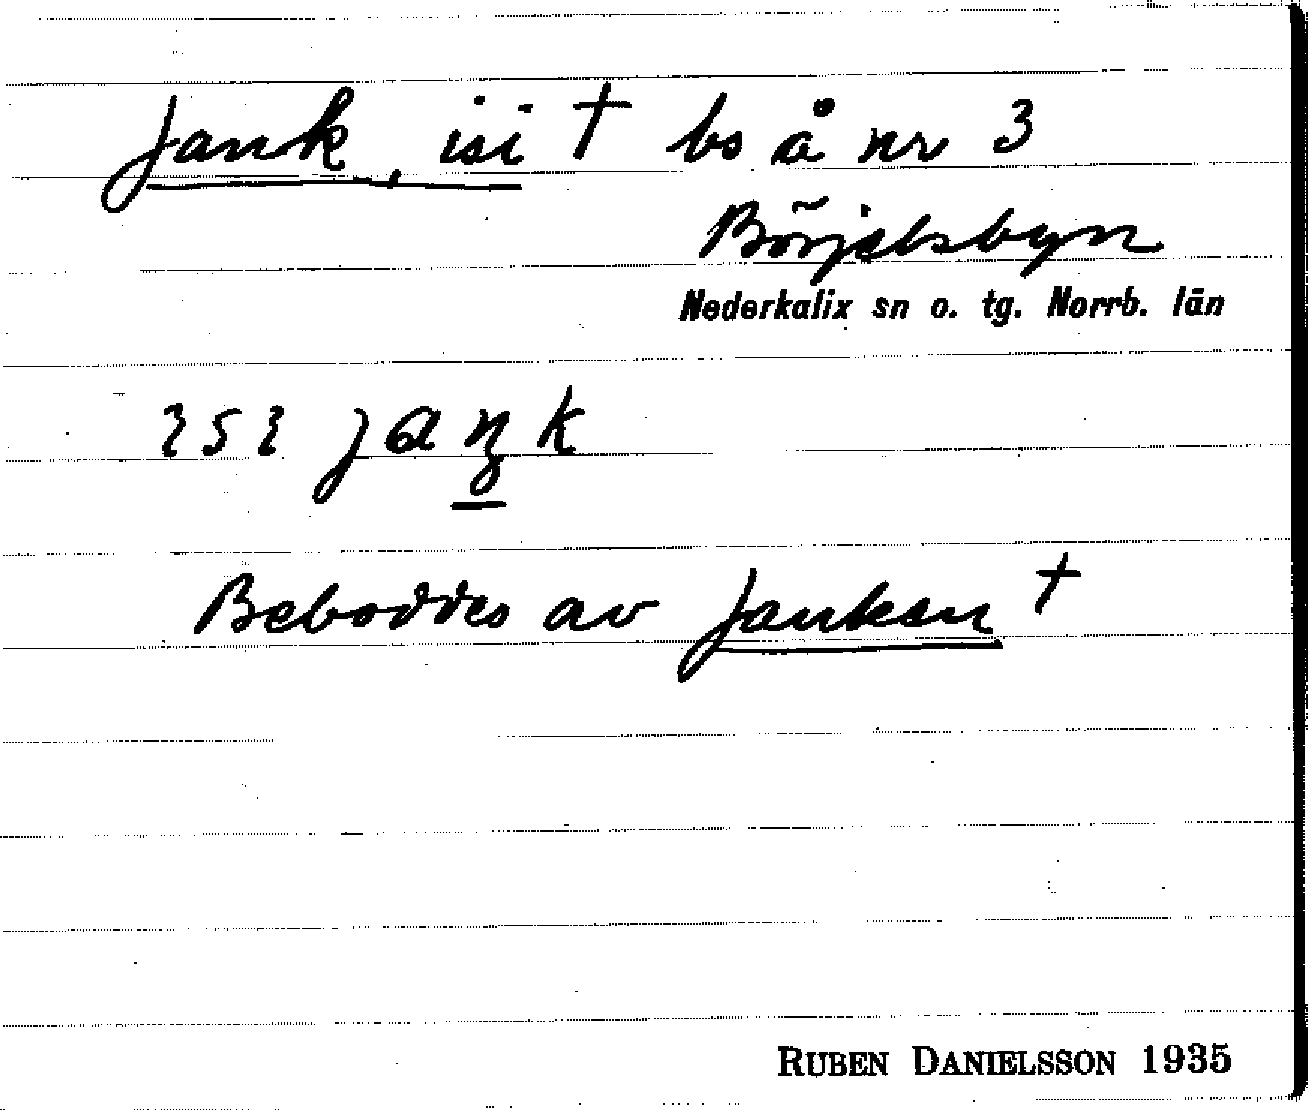 Jank, isi † bs å nr 3
Börjelsbyn
Nederkalix sn o. tg. Norrb. län
ɩsɩ jaŋk
Beboddes av Janken †
RUBEN DANIELSSON 1935